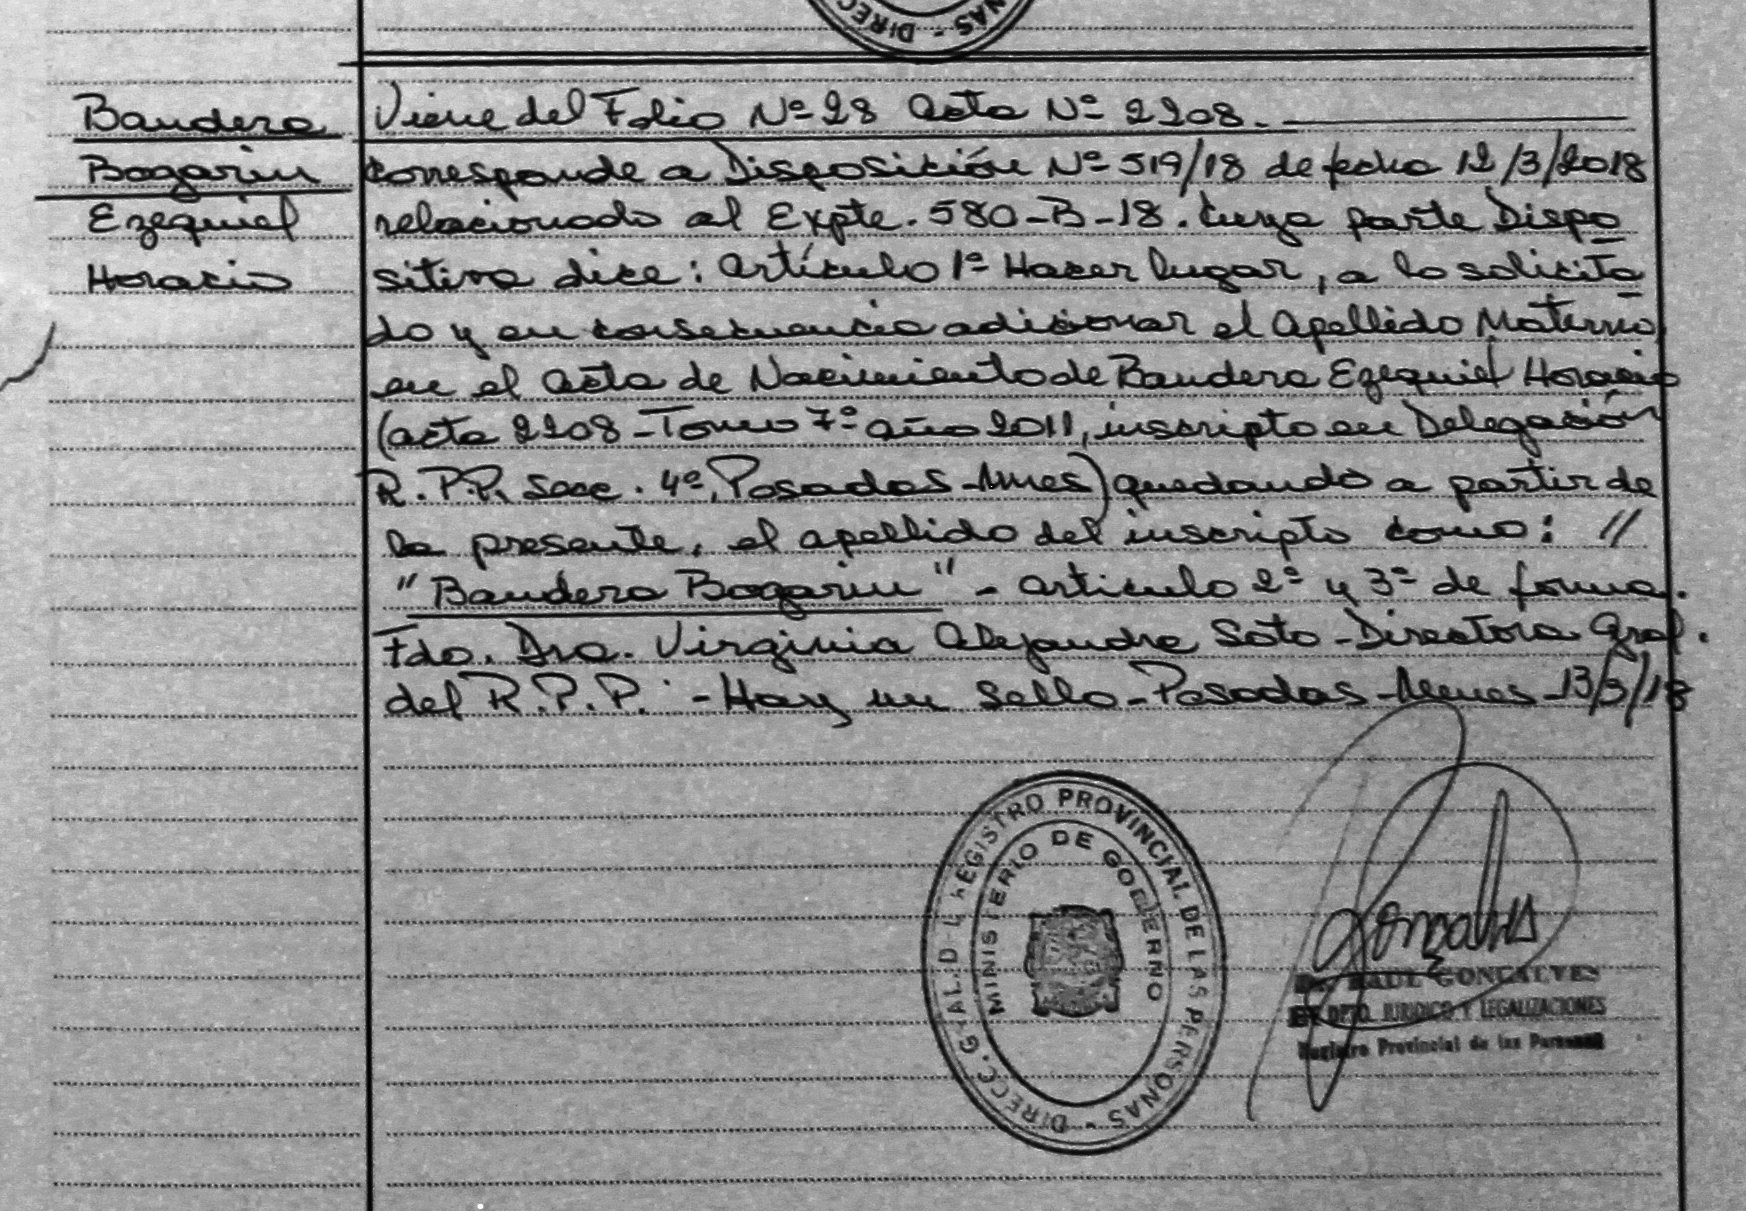 DIRECC NAS -
Bandera
Bogarin
Ezequiel
Horacio
Viene del Folio Nº 28 Acta Nº 2208.
Corresponde a Disposición Nº 519/18 de fecha 12/3/2018
relacionado al Expte. 580-B-18. Cuya parte Dispo
sitiva dice: Artículo 1º Hacer lugar, a lo solicita
do y en consecuencia adicionar el Apellido Materno
en el Acta de Nacimiento de Bandera Ezequiel Horacio
(acta 2208 - Tomo 7º año 2011, inscripto en Delegación
R.P.P. Secc. 4º, Posadas-Mnes) quedando a partir de
la presente, el apellido del inscripto como: //
"Bandera Bogarin" - Artículo 2º y 3º de forma.
Fdo. Dra. Virginia Alejandra Soto - Directora Gral.
del R.P.P. - Hay un Sello - Posadas - Mnes - 13/3/18
DIRECC. GRAL. DEL REGISTRO PROVINCIAL DE LAS PERSONAS -
MINISTERIO DE GOBIERNO
Gonçalves
Dr. RAUL GONCALVES
DPTO. JURIDICO Y LEGALIZACIONES
Registro Provincial de las Personas